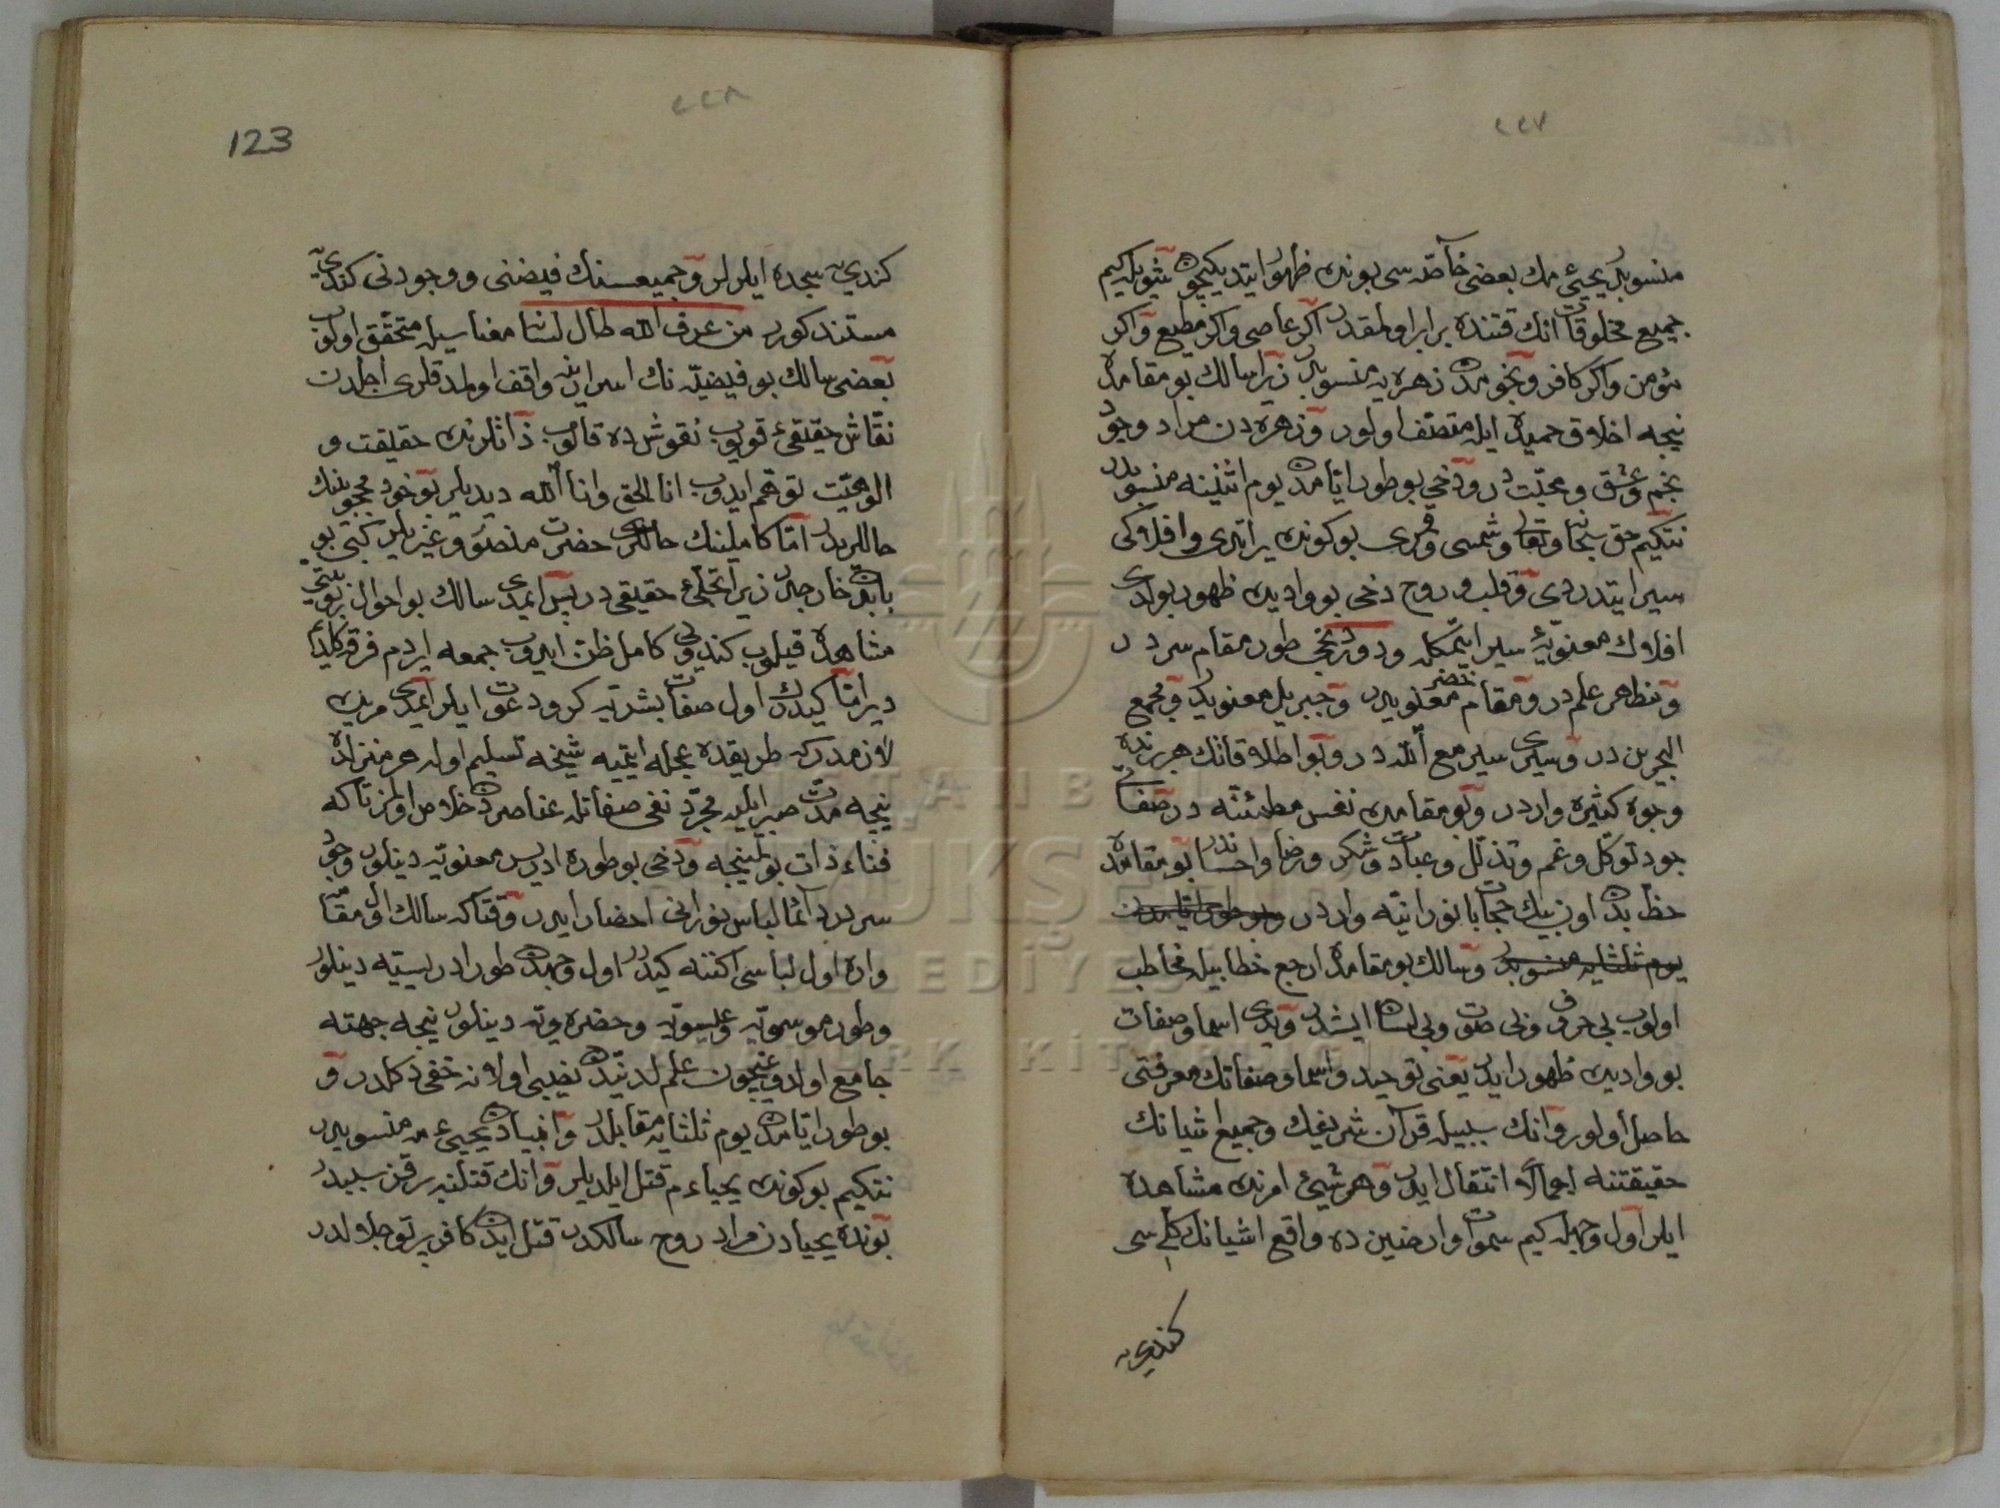 ٢٢٧
منسوبدر يحيئ مك بعضى خاصّه سى بونده ظهور ايتديكيچون شويله كيم
جميع مخلوقات انك قتنده برابر اولمقدر اكر عاصى واكر مطيع واكر
مؤمن واكر كافر ونجومدن زهره يه منسوبدر زيرا سالك بو مقامده
نيجه اخلاق حميده ايله متصف اولور وزهره دن مراد وجود
نجم وعشق ومحبّت در ودخى بو طور ايّامدن يوم اثنينه منسوبدر
نتكيم حق سبحانه وتعالى شمسى وقمرى بو كونده يراتدى وافلاكى
سير ايتدردى وقلب وروح دخى بو واديده ظهور بولدى
افلاك معنويّه‌ٔ سير ايتمكله ودردنجى طور مقام سردر
ومظهر علمدر ومقام خضر معنويدر وجبريل معنويدر ومجمع
البحرين در وسيرى سير مع الله در وبو اطلاقاتك هر برنده
وجوه كثيره واردر وبو مقامده نفس مطمئنّه در صفاتى
جود توكّل وغم وتذلّل وعبادت وشكر ورضا واحساندر بو مقامده
حظ بدن اون بيك حجابات نورانيّه واردر وبو طور ايّامدن
يوم ثلثايه منسوبدر وسالك بو مقامده ارجع خطابيله مخاطب
اولوب بى حرف وبى صوت وبى لسان ايشدر ويدى اسما وصفات
بو واديده ظهور ايدر يعنى توحيد واسما وصفاتك معرفتى
حاصل اولور وانك سببيله قرآن شريفك وجميع اشيانك
حقيقتنه اجمالا انتقال ايدر وهر شيئ امرنده مشاهده
ايلر اول وجهله كيم سموات وارضين ده واقع اشيانك كلّى سى
كندويه
٢٢٨
123
كندويه سجده ايلرلر وجميعسنك فيضنى ووجودنى كندويه
مستند كورر من عرف الله طال لسانه معناسيله متحقّق اولوب
بعضى سالك بو فيضيّه نك اسرارينه واقف اولمدقلرى اجلدن
نقّاش حقيقئ قويوب نقوش ده قالوب ذاتلرنده حقيقت و
الوهيّت توهّم ايدوب انا الحق وانا الله ديديلر بو خود محجوبلرك
حاللريدر امّا كاملينك حاللرى حضرت منصور وغيريلر كبى بو
بابدن خارجدر زيرا تجلّئ حقيقى در پس ايمدى سالك بو احوال ربوبيّتى
مشاهده قيلوب كندوى كامل ظن ايدوب جمعه ايردم فرقه كلدم
دير امّا كيدرك اول صفات بشريّه كرو دعوت ايلر ايمدى مريده
لازمدركه طريقده عجله ايتميه شيخه تسليم اوله هر منزلده
نيجه مدّت صبر ايليه مجرّد نفى صفاتله عناصردن خلاص اولمز تاكه
فناء ذات بولمينجه ودخى بو طوره ادريس معنويّه دينلور وجود
سرده دائما لباس نورانى احضار ايدر وقتاكه سالك اول مقامه
واره اول لباسى اكننه كيدر اول وجهدن طور ادريسيّه دينلور
وطور موسويّه وعيسويّه وحضرويّه دينلور نيجه جهته
جامع اولدوغيچون علم لدنيدن نصيبى اولانه خفى دكلدر و
بو طور ايّامدن يوم ثلثايه مقابلدر وانبيادن يحيئ مه منسوبدر
نتكيم بو كونده يحياء م قتل ايلديلر وانك قتلنه بر قز سببدر
بونده يحيادن مراد روح سالكدر قتل ايدن كافر پرتو جلالدر